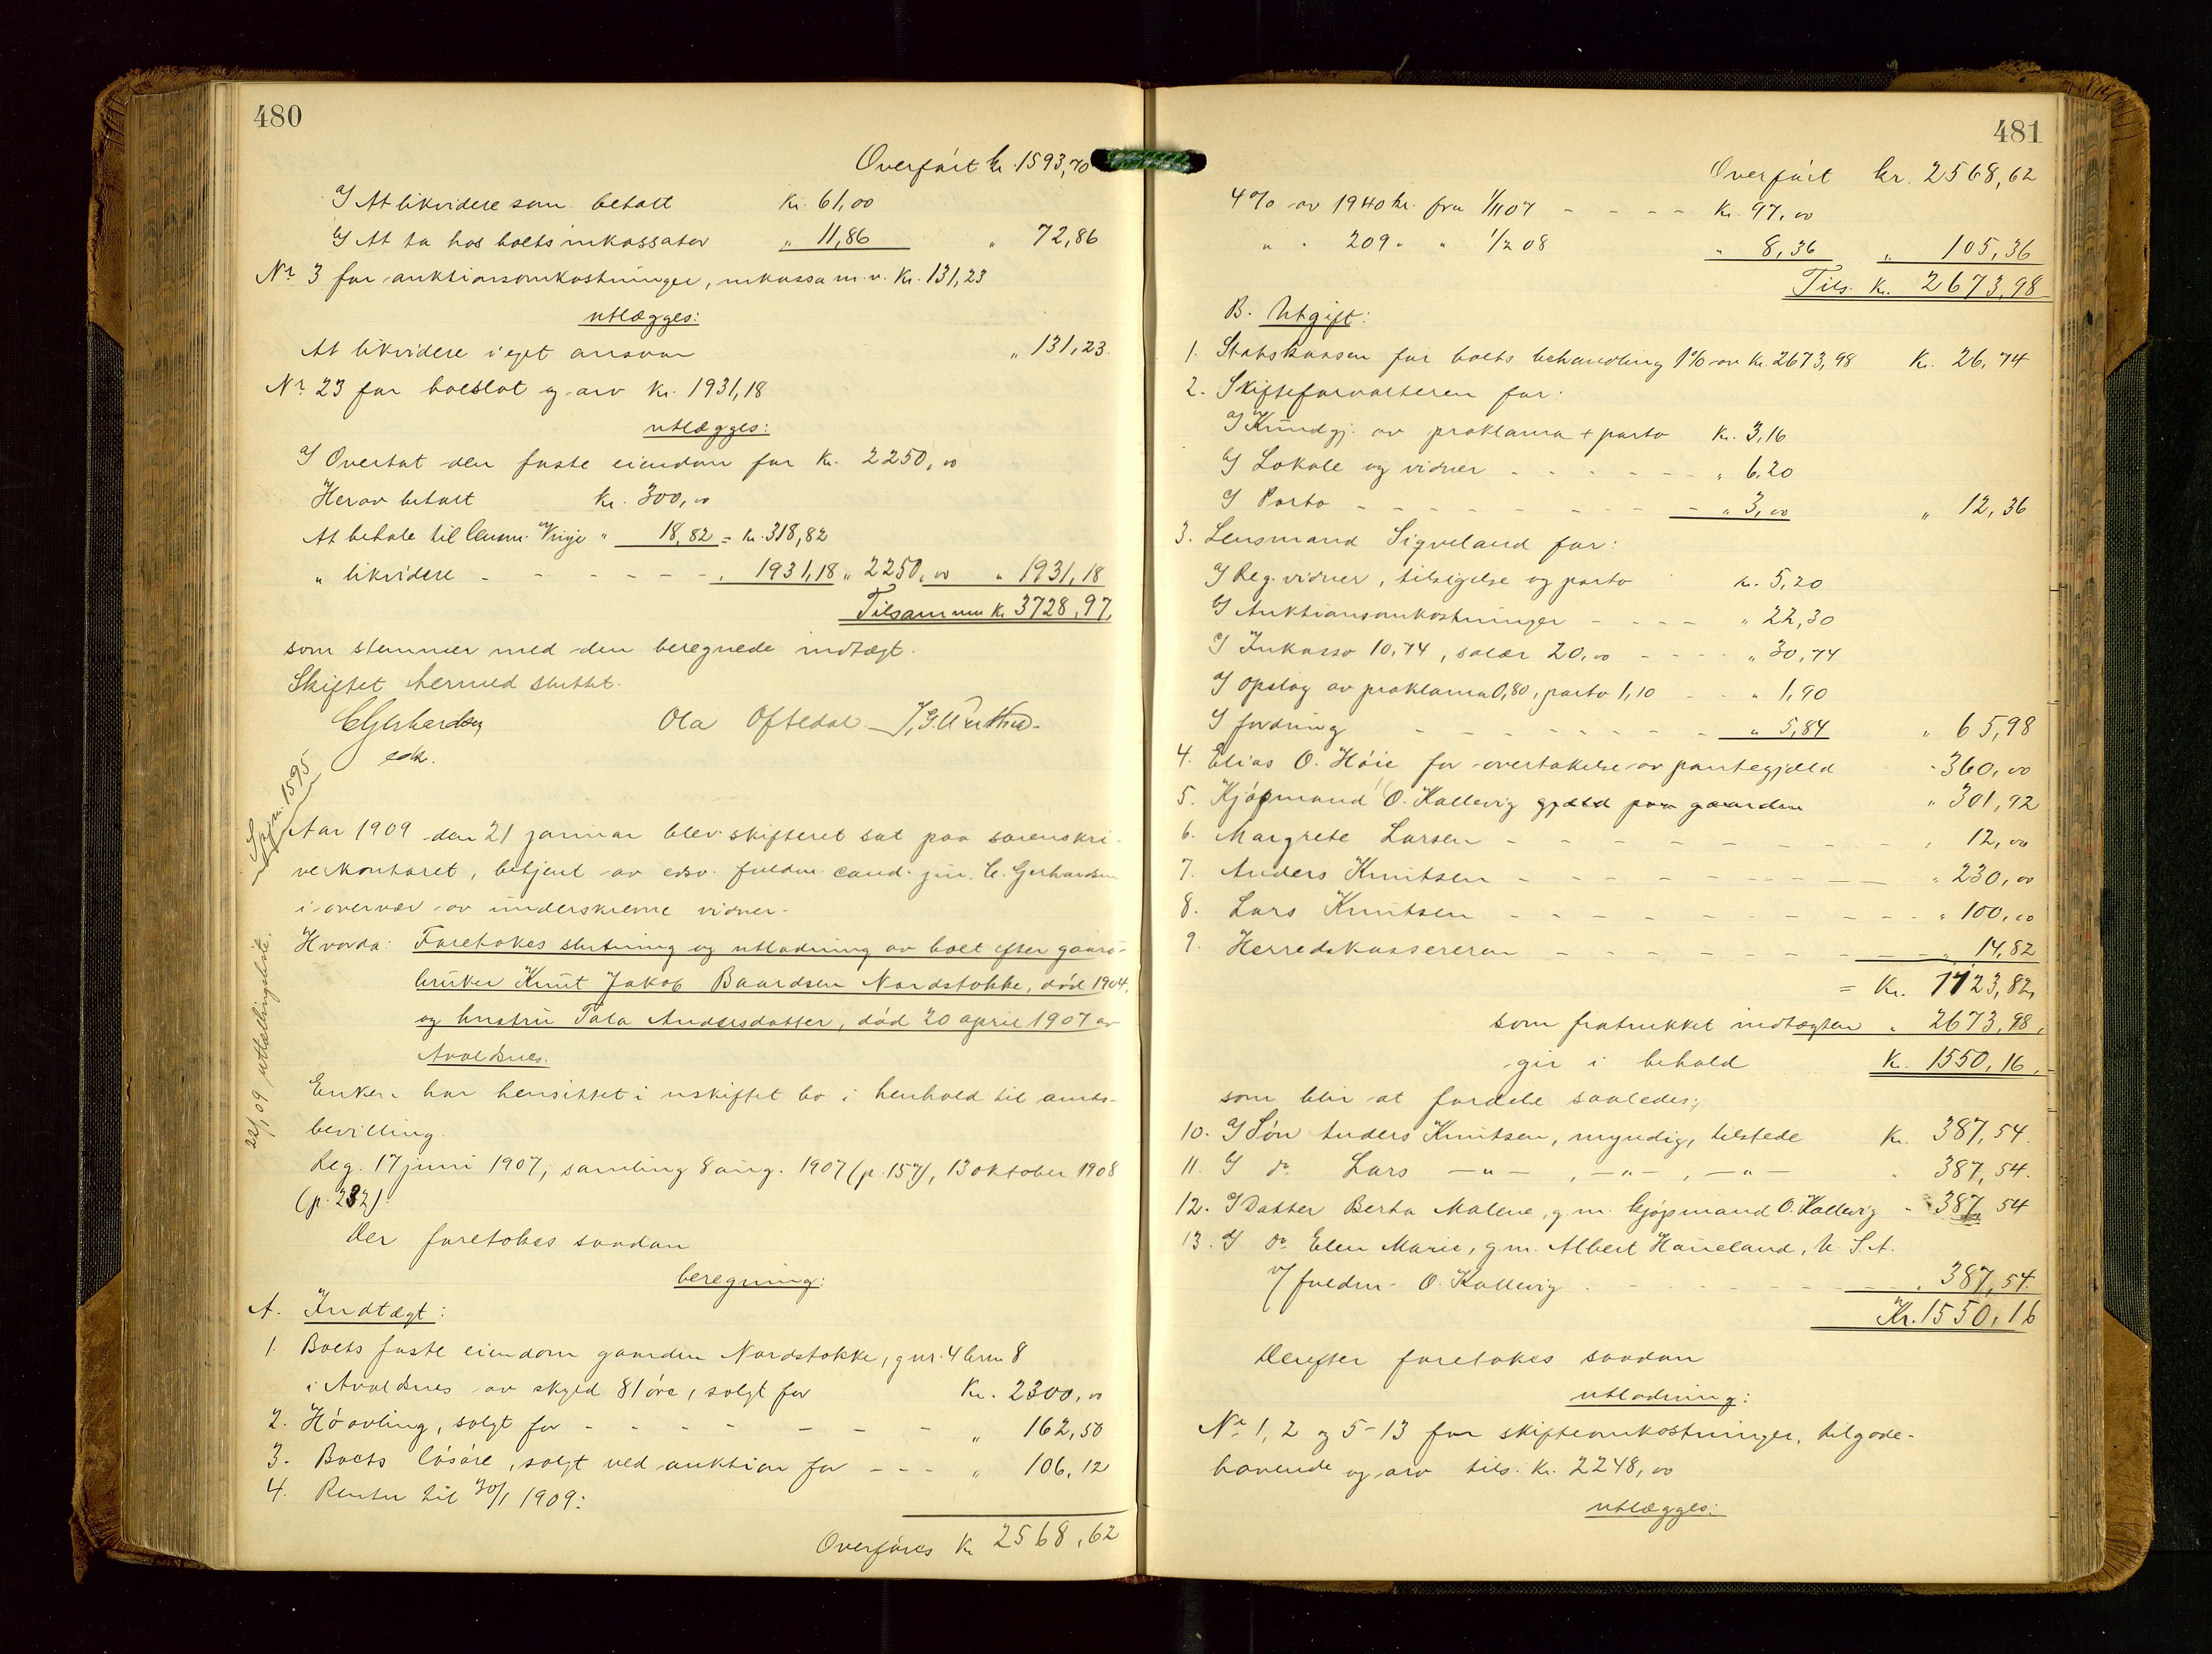 480
Overført kr. 1593,70
a) At likvidere som betalt kr. 61,00
b) At ta hos boets inkassator " 11,86 " 72,86
Nr. 3 for auktionsomkostninger, inkasso m.v. kr. 131,23
utlægges:
At likvidere i eget ansvar " 131,23.
Nr. 23 for boeslot og arv kr. 1931,18
utlægges:
a) Overtat den faste eiendom for kr. 2250,00
Herav betalt kr. 300,00
At betale til " 18,82 = kr. 318,82
" likvidere - - - - - - " 1931,18 " 2250,00 " 1931,18
Tilsammen kr. 3728,97.
som stemmer med den beregnede indtægt.
Skiftet hermed sluttet.
CGerhardsen Ola Oftedal
edsv.
1595
Aar 1909 den 21 januar blev skifteret sat paa sorenskri-
verkontoret, betjent av edsv. fuldm. cand. jur. C. Gerhardsen
i overvær av underskrevne vidner.
Hvorda: Foretokes slutning og utlodning av boet efter gaard-
bruker Knut Jakob Baardsen Nordstokke, død 1904,
og hustru Tala Andersdatter, død 20 april 1907 av
Avaldsnes.
22/1 09 uttællingsliste.
Enken har hensittet i uskiftet bo i henhold til amts-
bevilling.
Reg. 17 juni 1907; samling 8 aug. 1907 (p. 157), 13 oktober 1908
(p. 282).
Der foretokes saadan
beregning:
A. Indtægt:
1. Boets faste eiendom gaarden Nordstokke, gnr. 4 brn. 8
i Avaldsnes av skyld 81 øre, solgt for kr. 2300,00
2. Høavling, solgt for - - - - - - - " 162,50
3. Boets løsøre, solgt ved auktion for - - - " 106,12
4. Renter til 30/1 1909:
Overføres kr 2568,62
481
Overført kr. 2568,62
4% av 1940 kr. fra 1/11 07 - - - - kr. 97,00
" " 209 " " 1/2 08 " 8,36 " 105,36
Tils. kr. 2673,98
B. Utgift:
1. Statskassen for boets behandling 1% av kr. 2673,98 kr. 26,74
2. Skifteforvalteren for:
a) Kundgj. av proklama + porto kr. 3,16
b) Lokale og vidner - - - - - - " 6,20
c) Porto - - - - - - - - - " 3,00 " 12,36
3. Lensmand Sigveland for:
a) Reg. vidner, tilsigelse og porto kr. 5,20
b) Auktionsomkostninger - - - - " 22,30
c) Inkasso 10,74, salær 20,00 - - - - " 30,74
d) Opslag av proklama 0,80, porto 1,10 - - " 1,90
e) fordring - - - - - - - - " 5,84 " 65,98
4. Elias O. Høie for overtakelse av pantegjæld " 360,00
5. Kjøpmand O. Kallevig gjæld paa gaarden " 301,92
6. Margrete Larsen - - - - - - - - " 12,00
7. Anders Knutsen - - - - - - - - " 230,00
8. Lars Knutsen - - - - - - - - " 100,00
9. Herredskassereren - - - - - - - - " 14,82
= Kr. 1123,82,
som fratrukket indtægten " 2673,98,
gir i behold kr. 1550,16,
som blir at fordele saaledes:
10. a) Søn Anders Knutsen, myndig, tilstede kr. 387,54.
11. b) do. Lars —"—, —"—, —"— " 387,54.
12. c) Datter Berta Malene, g.m. kjøpmand O. Kallevig " 387,54
13. d) do. Elen Marie, g.m. Albert Haueland, U.S.A.
v/ fuldm. O. Kallevig - - - - - - " 387,54.
Kr. 1550,16
Derefter foretokes saadan
utlodning:
Nr. 1, 2 og 5-13 for skifteomkostninger, tilgode-
havende og arv tils. kr. 2248,00
utlægges: